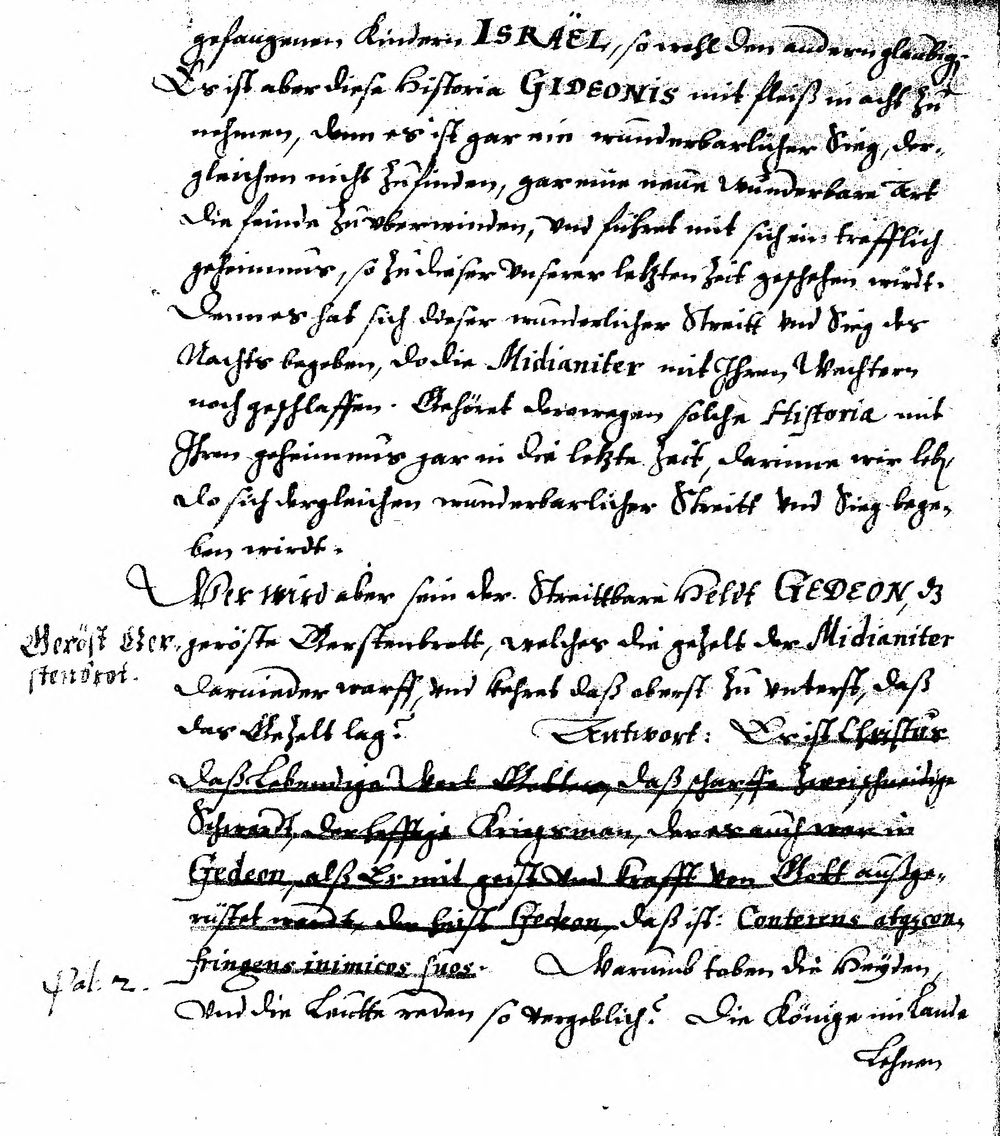 gefangenen Kindern ISRAËL, so wohl den andern glaubig
Es ist aber diese Historia GIDEONIS mit fleiß in acht zu
nehmen, denn es ist gar ein wunderbarlicher Sieg, der-
gleichen nicht zufinden, gar eine neue wunderbare Art
die feinde zu vberwinden, vnd führet mit sich ein trefflich
geheimnus, so zu dieser vnserer letzten Zeit geschehen wirdt.
Denn es hat sich dieser wunderlicher Streitt vnd Sieg des
Nachts begeben, do die Midianiter mit Ihren Wechtern
noch geschlaffen. Gehöret derowegen solche Historia mit
Ihren geheimnus gar in die letzte Zeit, darinne wir leb
do sich dergleichen wunderbarlicher Streitt vnd Sieg bege-
ben wirdt.
Wer wird aber sein der Streittbare Heldt GEDEON, dz
Geröst Ger-
stenbrot.
geröste Gerstenbrott, welches die gezelt der Midianiter
darnieder warff, vnd kehret daß oberst zu vnterst, daß
das Gezelt lag? Antwort: Er ist Christus
daß Lebendige Wort Gottes, daß scharffe zweischneidige
Schwerdt, der Kriegsman, der er auch war in
Gedeon, alß Er mit geist vnd krafft von Gott außge-
rüstet wardt, der heist Gedeon, daß ist: Conterens atqz con-
fringens inimicos suos. Warumb toben die Heyden,
Psal. 2.
vnd die Leutte reden so vergeblich? Die Könige im Lande
Lehnen